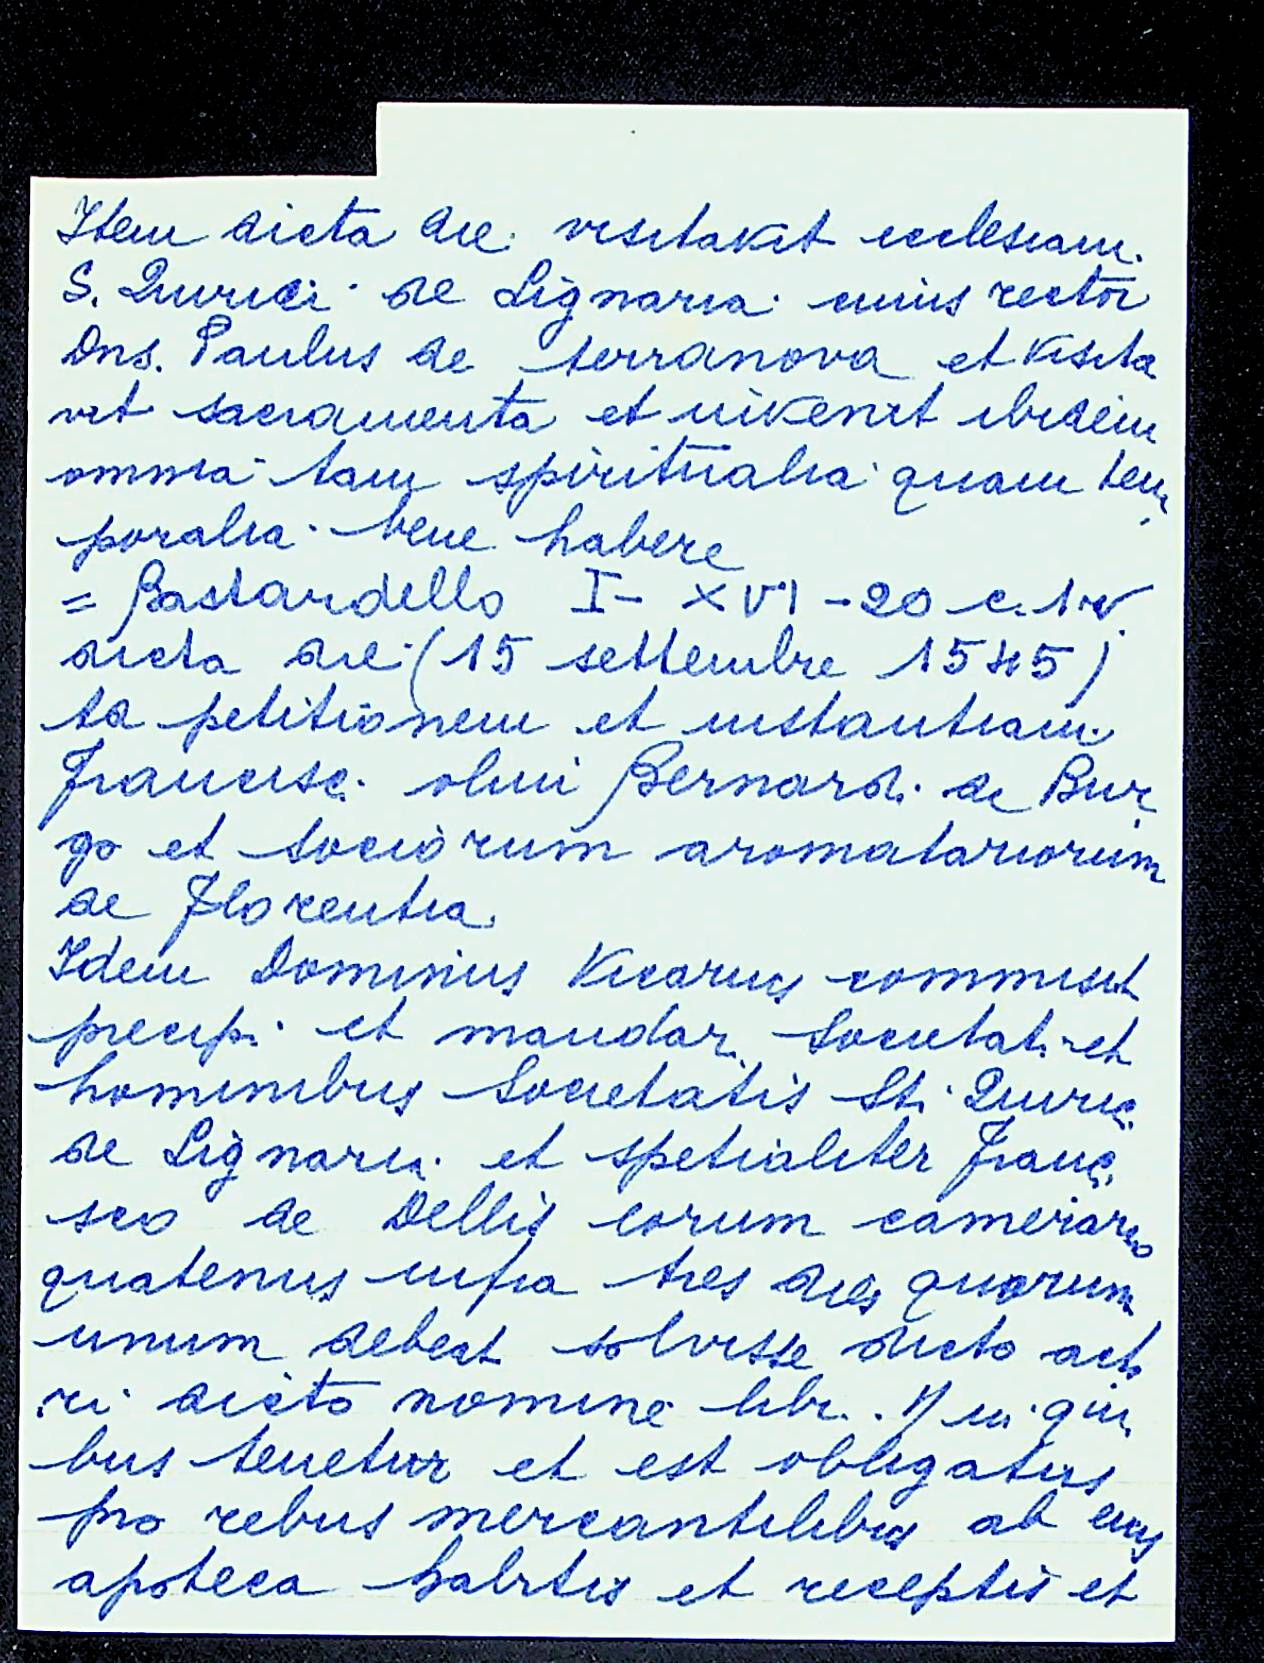 Item dicta die visitavit ecclesiam
S. Quirici de Lignaria cuius rector
Dns. Paulus de terranova et visita
vit sacramenta et invenit ibidem
omnia tam spiritualia quam tem
poralia bene habere
= Bastardello I - XVI - 20 c. 1 v
dicta die (15 settembre 1545)
petitionem et instantiam
Francisci olim Bernardi de Bur
go et sociorum aromatariorum
de Florentia
Idem Dominus Vicarius commisit
precipi et mandari Societati et
hominibus Societatis Sti Quirici
de Lignaria et spetialiter Franci
sco de Dellis eorum camerario
quatenus infra tres dies quorum
unum debeat solvisse dicto acto
ri dicto nomine libr. in qui
bus tenetur et est obligatus
pro rebus mercantilibus ab eius
apoteca habitis et receptis et